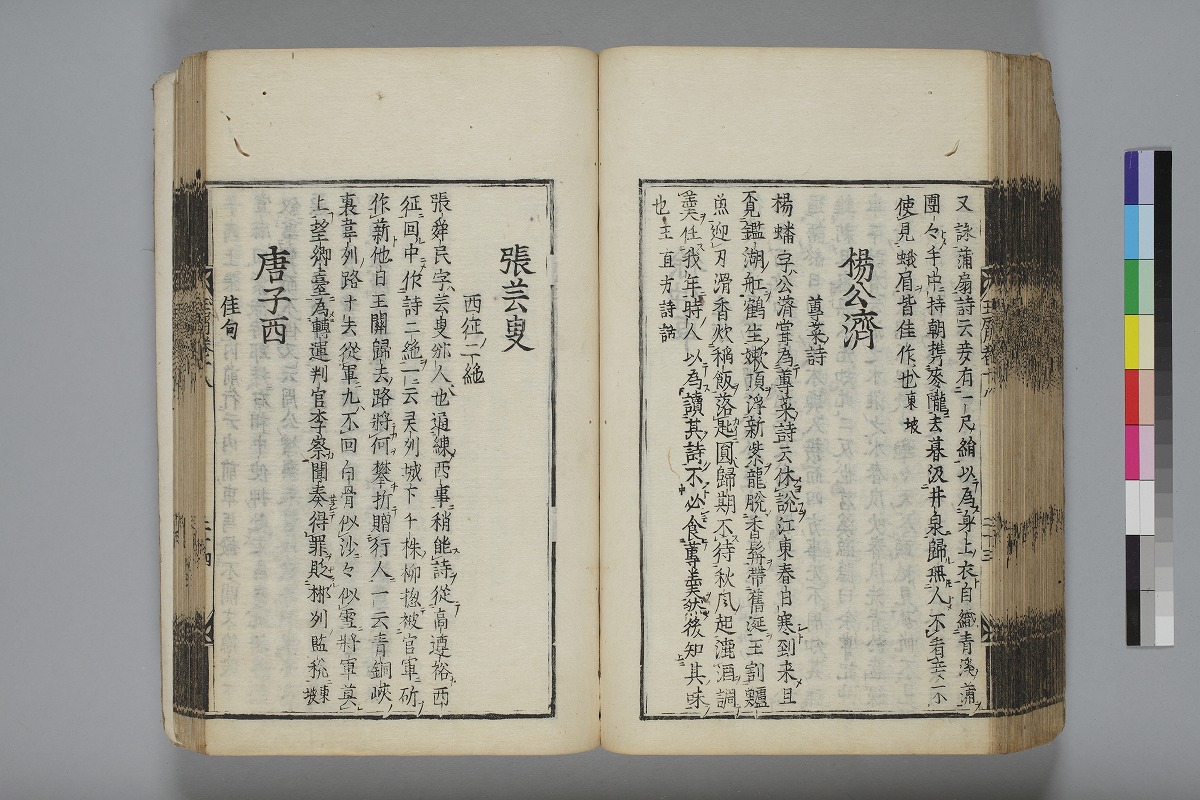 又詠蒲扇詩云妾有一尺絹以為身上衣自織青溪蒲
團々千中持朝携麥隴去暮汲井泉歸無人不看
使見蛾眉皆佳作也東坡
楊公濟
蓴菜詩
楊蟠字公濟嘗為蓴菜詩云休說江東春日寒到来且
覓鑑湖舡鶴生嫰頂浮新紫龍脫香髯帶舊涎玉割鱸
煎迎刃滑香炊稱飯落匙圓歸期不待秋風起漉酒調
羹任我年時人以為讀其詩不必食蓴羹然後知其味
也王直方詩話
張芸叟
西征二絶
張舜民字芸叟邠人也通練西事稍能詩從高遵裕西
征回中作詩二絶一云灵列城下千株柳揔被官軍斫
作薪他日玉關歸去路將何攀折贈行人一云青銅峽
裏韋列路十去從軍九不回白骨似沙々似雪將軍莫
上望鄉臺為轉運判官李察聞奏得罪貶郴列監稅東坡
唐子西
佳句